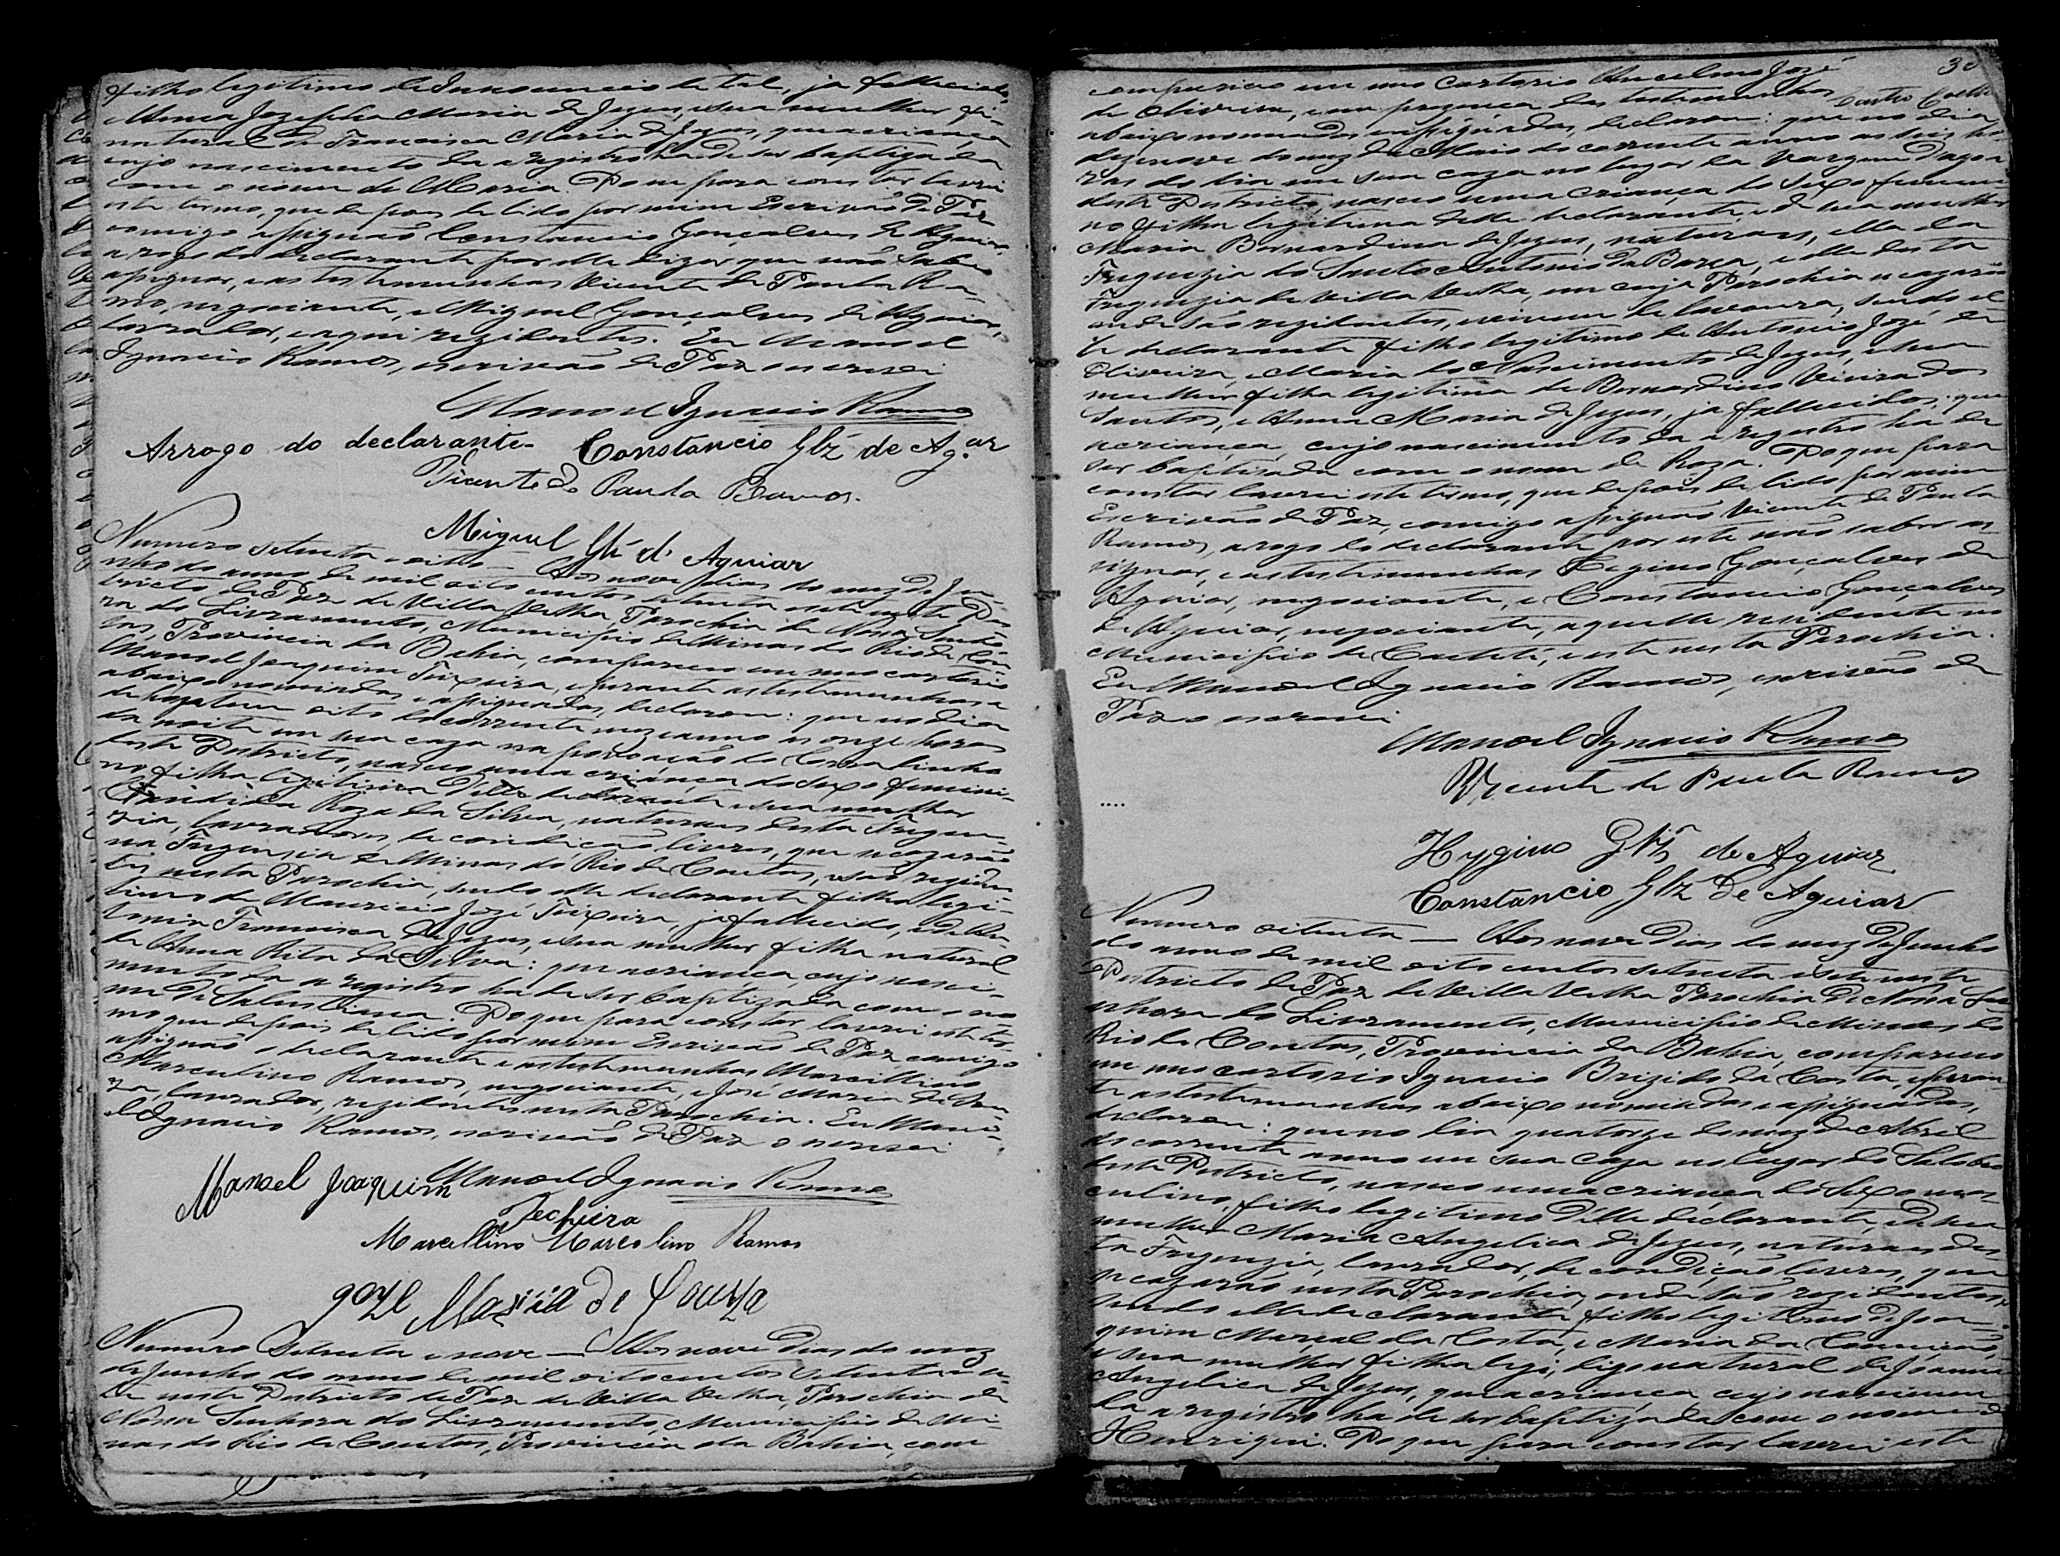 filho legitimo de Innocencio de tal, ja fallecido,
e Anna Jozepha Maria de Jezus, e sua mulher fi-
natural de Francisca Maria de Jezus, que a criança
cujo nascimento da a registro ha de ser baptizada
com o nome de Maria. Do que para constar lavrei
este termo, que depois de lido por mim Escrivão de Paz
comigo assignão Constancio Gonçalves de Aguiar,
a rogo do declarante por elle dizer que não sabe
assignar, e as testemunhas Vicente de Paula Ra-
mos, negociante, e Miguel Gonçalves de Aguiar,
lavrador, e aqui rezidentes. Eu Manoel
Ignacio Ramos, escrivão de Paz o escrevi
Manoel Ignacio Ramos
Arrogo do declarante Constancio Glz de Ag.ar
Vicente de Paula Ramos.
Miguel Gl. d' Aguiar
Numero setenta e oito — Aos nove dias do mez de Ju-
nho do anno de mil oito centos setenta e sete neste Des-
tricto de Paz de Villa Velha Parochia de Nossa Senho-
ra do Livramento, Municipio de Minas do Rio de Con-
tas, Provincia da Bahia, compareceo em meo cartorio
Manoel Joaquim Teixeira, e perante as testemunhas
abaixo nomiadas e assignadas, declarou: que no dia
oito do corrente mez e anno as onze horas
da noite em sua caza na povoação do Curralinho
deste Destricto, nasceu uma criança do sexo femini-
no filha legitima delle declarante e sua mulher
Candida Roza da Silva, naturaes desta Fregue-
zia, lavradores, de condicão livres, que se cazarão
na Freguezia de Minas do Rio de Contas, e são reziden-
tes nesta Parochia, sendo elle declarante filho legi-
timo de Mauricio José Teixeira, ja fallecido, e de
Francisca de Jezus, e sua mulher filha natural
de Anna Rita da Silva: que a criança, cujo nasci-
mento da a registro ha de ser baptizada com o no-
me de Salustiana. Do que para constar lavrei este ter-
mo que depois de lido por mim Escrivão de Paz comigo
assignão o declarante e as testemunhas Marcellino
Marcolino Ramos, negociante, e José Maria de Sou-
za, lavrador, rezidentes nesta Parochia. Eu Mano-
el Ignacio Ramos, escrivão de Paz o escrevi
Manoel Ignacio Ramos
Manoel Joaquim
Techiera
Marcellino Marcolino Ramos
goze Maria de Souza
Numero Setenta e nove — Aos nove dias do mez
de Junho do anno de mil oitocentos setenta e se-
te neste Destricto de Paz de Villa Velha, Parochia de
Nossa Senhora do Livramento, Municipio de Mi-
nas do Rio de Contas, Provincia da Bahia, com
30
compareceo em meo cartorio Anselmo José
de Oliveira, e em prezença das testemunhas
abaixo nomiadas, e assignadas, declarou: que no dia
dezenove do mez de Maio do corrente anno as seis ho-
ras do dia em sua caza no lugar da Vargem
deste Destricto, nasceu uma criança do sexo femeni-
no filha legitima delle declarante, e de sua mulher
Maria Bernardina de Jezus, naturaes, elle da
Freguezia do Santo Antonio da Barra, e ella desta
Freguezia de Villa Velha, em cuja Parochia se cazarão
onde são rezidentes, vivem de lavoura, sendo el-
le declarante filho legitimo de Antonio José de
Oliveira, e Maria do Nascimento de Jezus, e sua
mulher filha legitima de Bernardino Vieira dos
Santos, e Anna Maria de Jezus, ja fallecidos: que
a criança, cujo nascimento da a registro ha de
ser baptizada com o nome de Roza. Do que para
constar lavrei este termo, que depois de lido por mim
Escrivão de Paz, comigo assignão Vicente de Paula
Ramos, a rogo do declarante por este não saber as-
signar, e as testemunhas Hegino Gonçalves de
Aguiar, negociante, e Constancio Gonçalves
de Aguiar, negociante, aquelle residente no
Municipio de Caeteté, e este nesta Parochia.
Eu Manoel Ignacio Ramos, escrivão de
Paz o escrevi
Manoel Ignacio Ramos
Vicente de Paula Ramos
Hygino Glz de Aguiar
Constancio Glz de Aguiar
Numero oitenta — Aos nove dias do mez de Junho
do anno de mil oito centos setenta e sete neste
Destricto de Paz de Villa Velha Parochia de Nossa Se-
nhora do Livramento, Municipio de Minas do
Rio de Contas, Provincia da Bahia, compareceo
em meo cartorio Ignacio Brizido da Costa, e peran-
te as testemunhas abaixo nomiadas e assignadas,
declarou: que no dia quatorze do mez de Abril
do corrente anno em sua caza no lugar do Salobro
deste Destricto, nasceu uma criança do sexo mas-
culino, filho legitimo delle declarante, e de sua
mulher Maria Angelica de Jezus, naturaes des-
ta Freguezia, lavrador, de condição livres, que
se cazarão nesta Parochia, onde são rezidentes,
sendo elle declarante filho legitimo de Joa-
quim Marçal da Costa, e Maria da Conceição
e sua mulher filha legi, digo natural de Joanna
Angelica de Jezus, que a criança cujo nascimen-
da a registro ha de ser baptizada com o nome de
Henrique. Do que para constar lavrei este